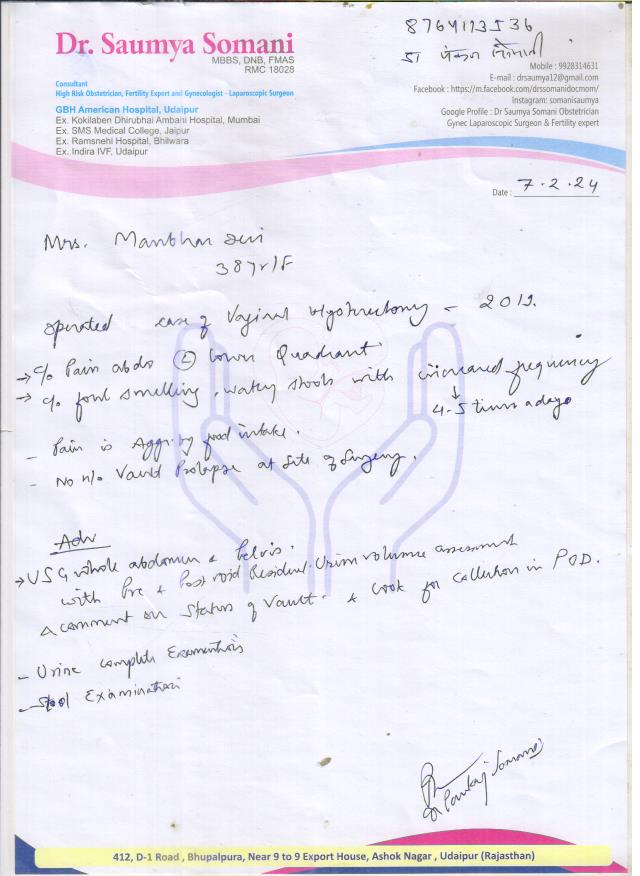 8764113536
डा पंकज सोमानी
Dr. Saumya Somani
MBBS, DNB, FMAS
RMC 18028
Consultant
High Risk Obstetrician, Fertility Expert and Gynecologist - Laparoscopic Surgeon
GBH American Hospital, Udaipur
Ex. Kokilaben Dhirubhai Ambani Hospital, Mumbai
Ex. SMS Medical College, Jaipur
Ex. Ramsnehi Hospital, Bhilwara
Ex. Indira IVF, Udaipur
Mobile : 9928314631
E-mail : drsaumya12@gmail.com
Facebook : https://m.facebook.com/drssomanidocmom/
Instagram: somanisaumya
Google Profile : Dr Saumya Somani Obstetrician
Gynec Laparoscopic Surgeon & Fertility expert
Date : 7.2.24
Mrs. Manbhar Devi
38yr/F
operated case of Vaginal - 2019.
→ c/o Pain abdo (L) lower Quadrant
→ c/o foul smelling, watery stools with increased frequency
↓
4-5 times a day
- Pain is Agg. by food intake.
- No h/o Vault Prolapse at site of Surgery.
Adv
→ USG whole abdomen & Pelvis.
with Pre & Post void Residual Urine volume assessment
& comment on Status of Vault. & Look for collection in POD.
- Urine complete Examination
- Stool Examination
Dr Pankaj Somani
412, D-1 Road , Bhupalpura, Near 9 to 9 Export House, Ashok Nagar , Udaipur (Rajasthan)